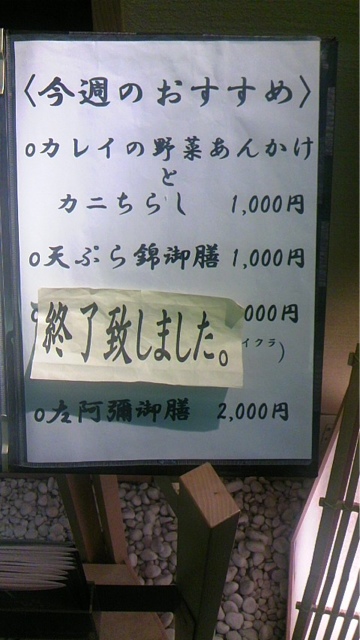 〈今週のおすすめ〉
oカレイの野菜あんかけ
と
カニちらし 1,000円
o天ぷら錦御膳 1,000円
終了致しました。 000円
イクラ)
o左阿彌御膳 2,000円